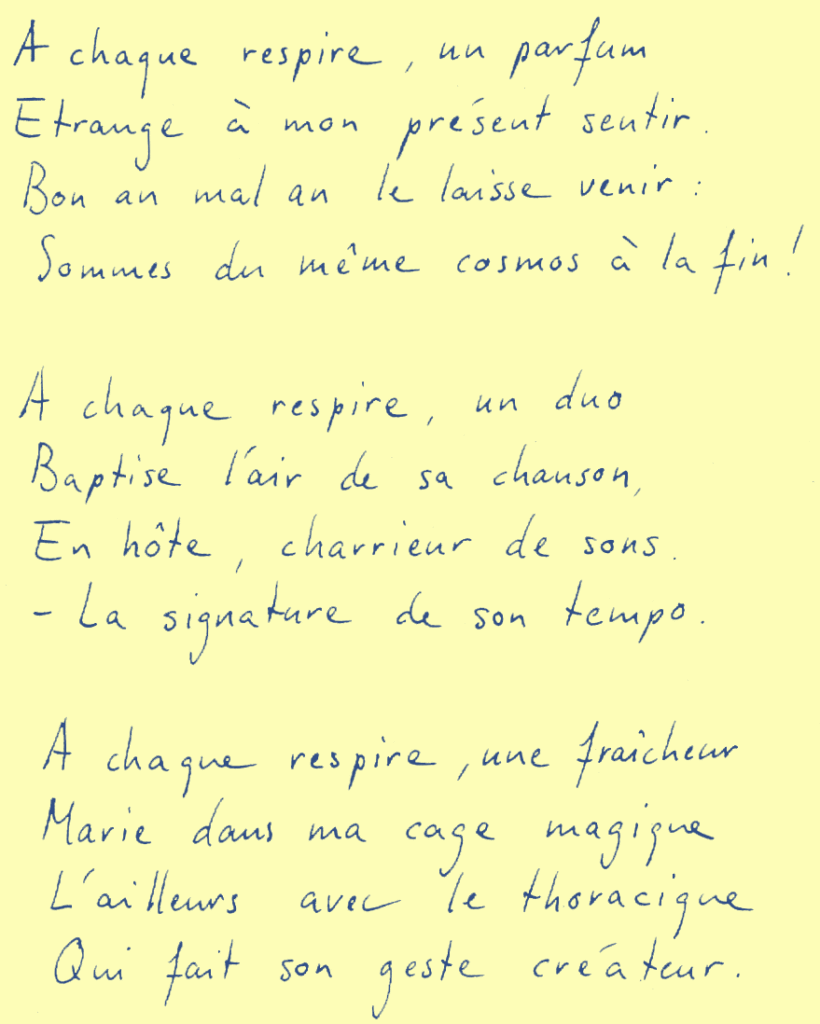 A chaque respire, un parfum
Etrange à mon présent sentir.
Bon an mal an le laisse venir :
Sommes du même cosmos à la fin !
A chaque respire, un duo
Baptise l'air de sa chanson,
En hôte, charrieur de sons.
- La signature de son tempo.
A chaque respire, une fraîcheur
Marie dans ma cage magique
L'ailleurs avec le thoracique
Qui fait son geste créateur.